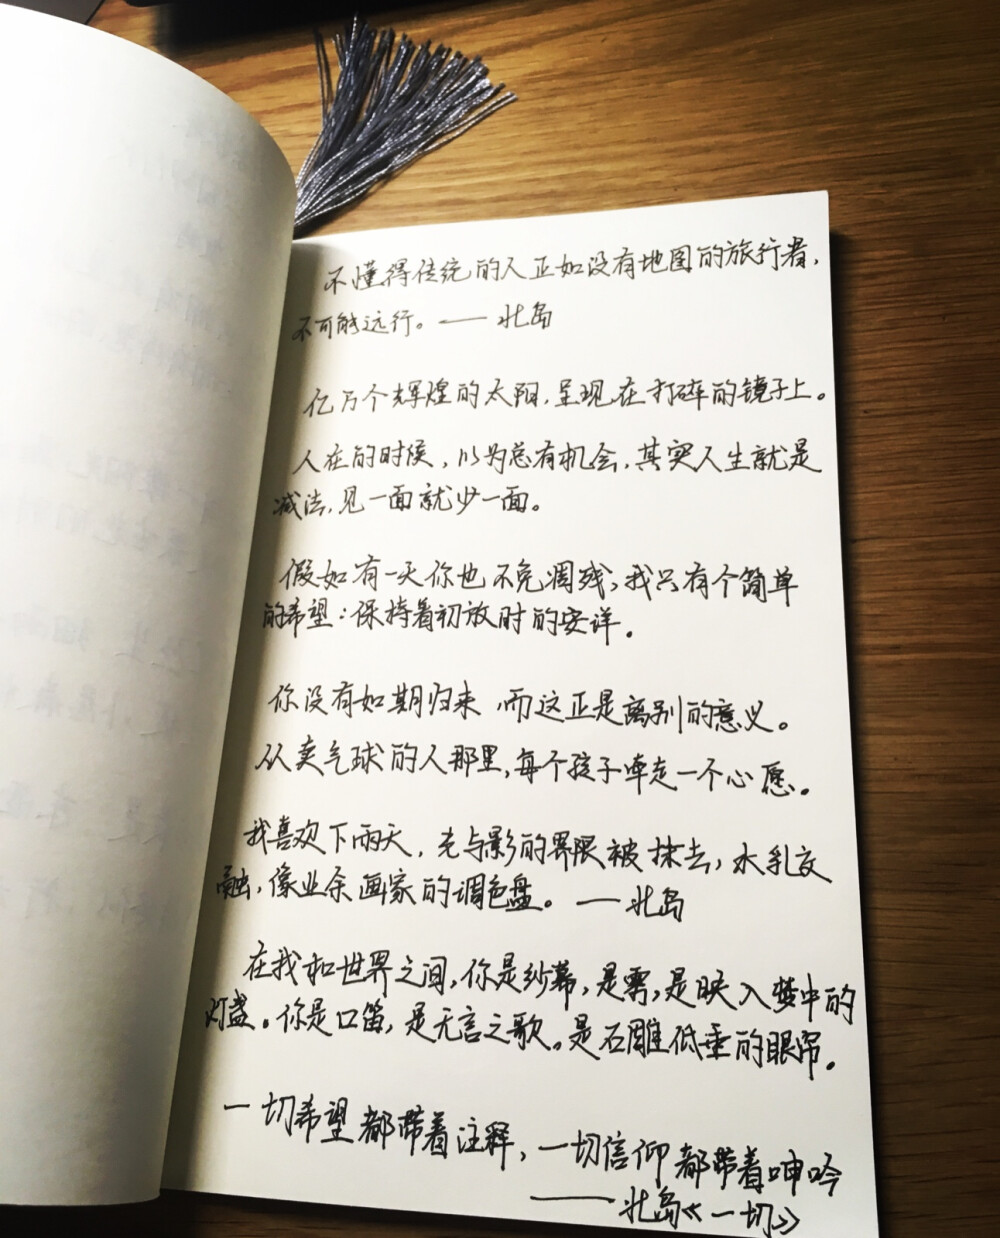 不懂得传统的人正如没有地图的旅行者，
不可能远行。——北岛
亿万个辉煌的太阳，呈现在打碎的镜子上。
人在的时候，以为总有机会，其实人生就是
减法，见一面就少一面。
假如有一天你也不免凋残，我只有个简单
的希望：保持着初放时的安详。
你没有如期归来，而这正是离别的意义。
从卖气球的人那里，每个孩子牵走一个心愿。
我喜欢下雨天，光与影的界限被抹去，水乳交
融，像业余画家的调色盘。——北岛
在我和世界之间，你是纱幕，是雾，是映入梦中的
灯盏。你是口笛，是无言之歌。是石雕低垂的眼帘。
一切希望都带着注释，一切信仰都带着呻吟
——北岛《一切》